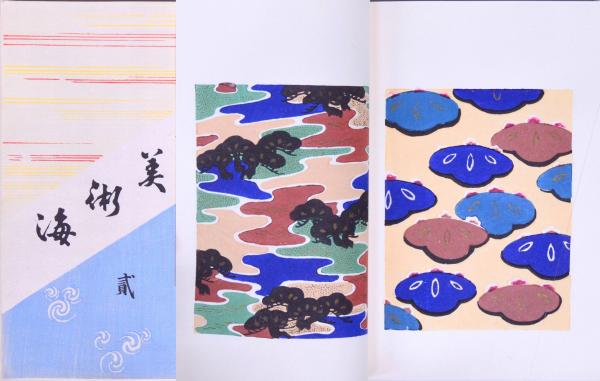 美術海
貳